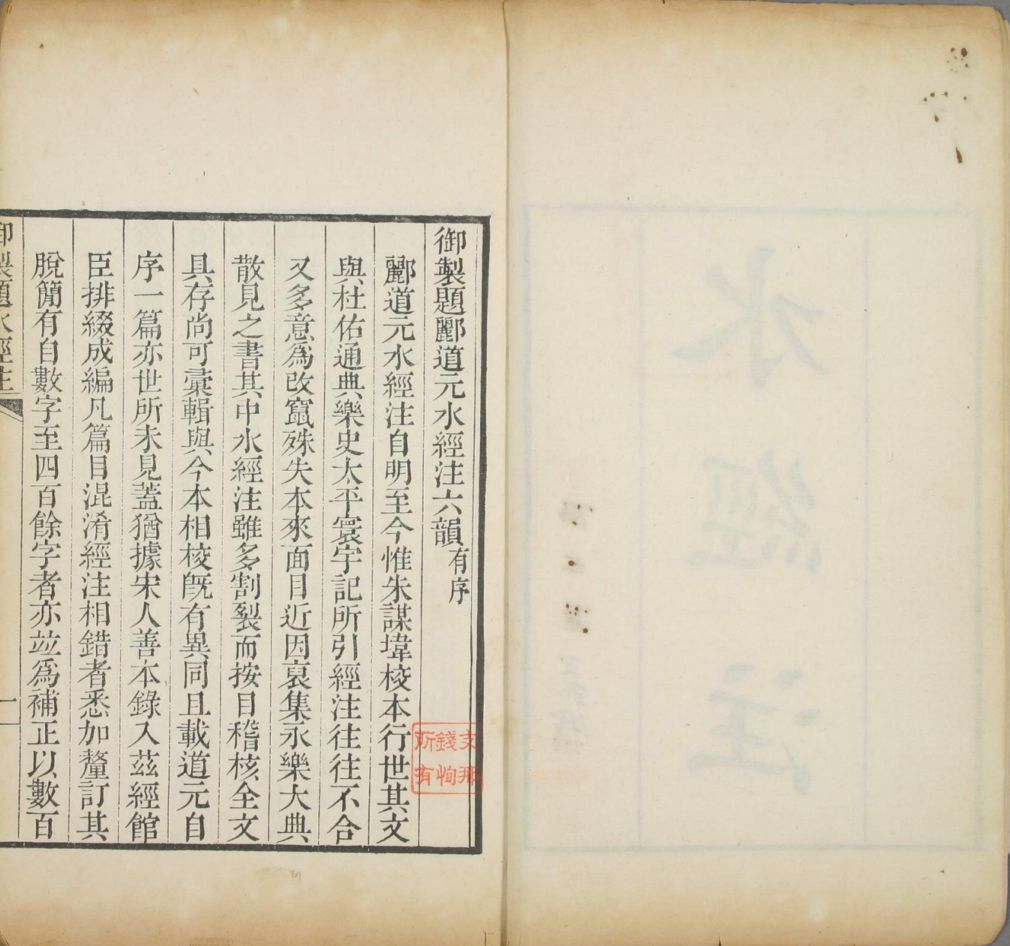 御製題酈道元水經注六韻有序
酈道元水經注自明至今惟朱謀㙔校本行世其文
與杜佑通典樂史太平寰宇記所引經注往往不合
又多意爲改竄殊失本來面目近因裒集永樂大典
散見之書其中水經注雖多割裂而按目稽核全文
具存尚可彙輯與今本相校旣有異同且載道元自
序一篇亦世所未見蓋猶據宋人善本錄入茲經館
臣排綴成編凡篇目混淆經注相錯者悉加釐訂其
脫簡有自數字至四百餘字者亦竝爲補正以數百
御製題水經注
一
支那
錢恂
所有
水經注